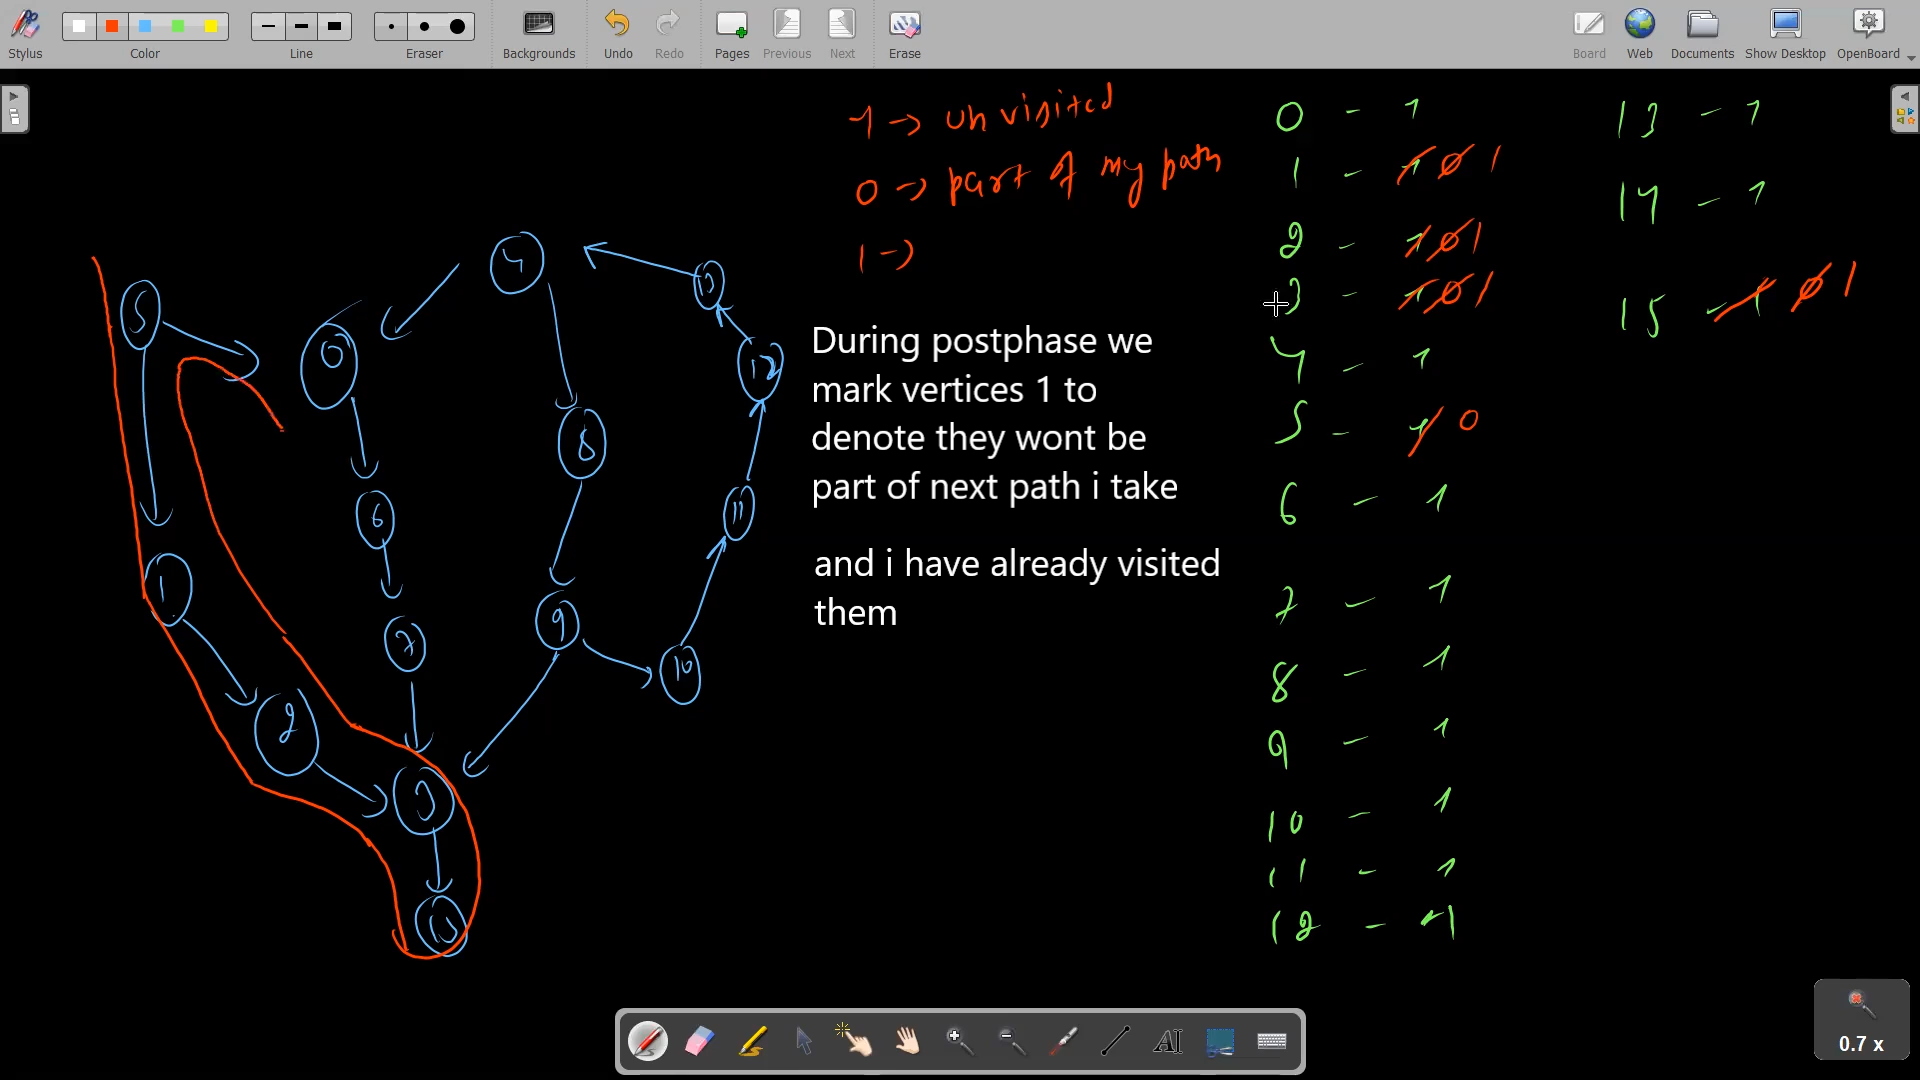 Stylus
Color
Line
Eraser
Backgrounds
Undo
Redo
Pages
Previous
Next
Erase
Board
Web
Documents
Show Desktop
OpenBoard
-1 -> un visited
0 -> part of my path
1 ->
During postphase we
mark vertices 1 to
denote they wont be
part of next path i take
and i have already visited
them
5
0
4
13
12
8
6
11
1
9
7
10
2
3
0 - -1
1 - -1 0 1
2 - -1 0 1
3 - -1 0 1
4 - -1
5 - -1 0
6 - -1
7 - -1
8 - -1
9 - -1
10 - -1
11 - -1
12 - -1
13 - -1
14 - -1
15 - -1 0 1
0.7 x